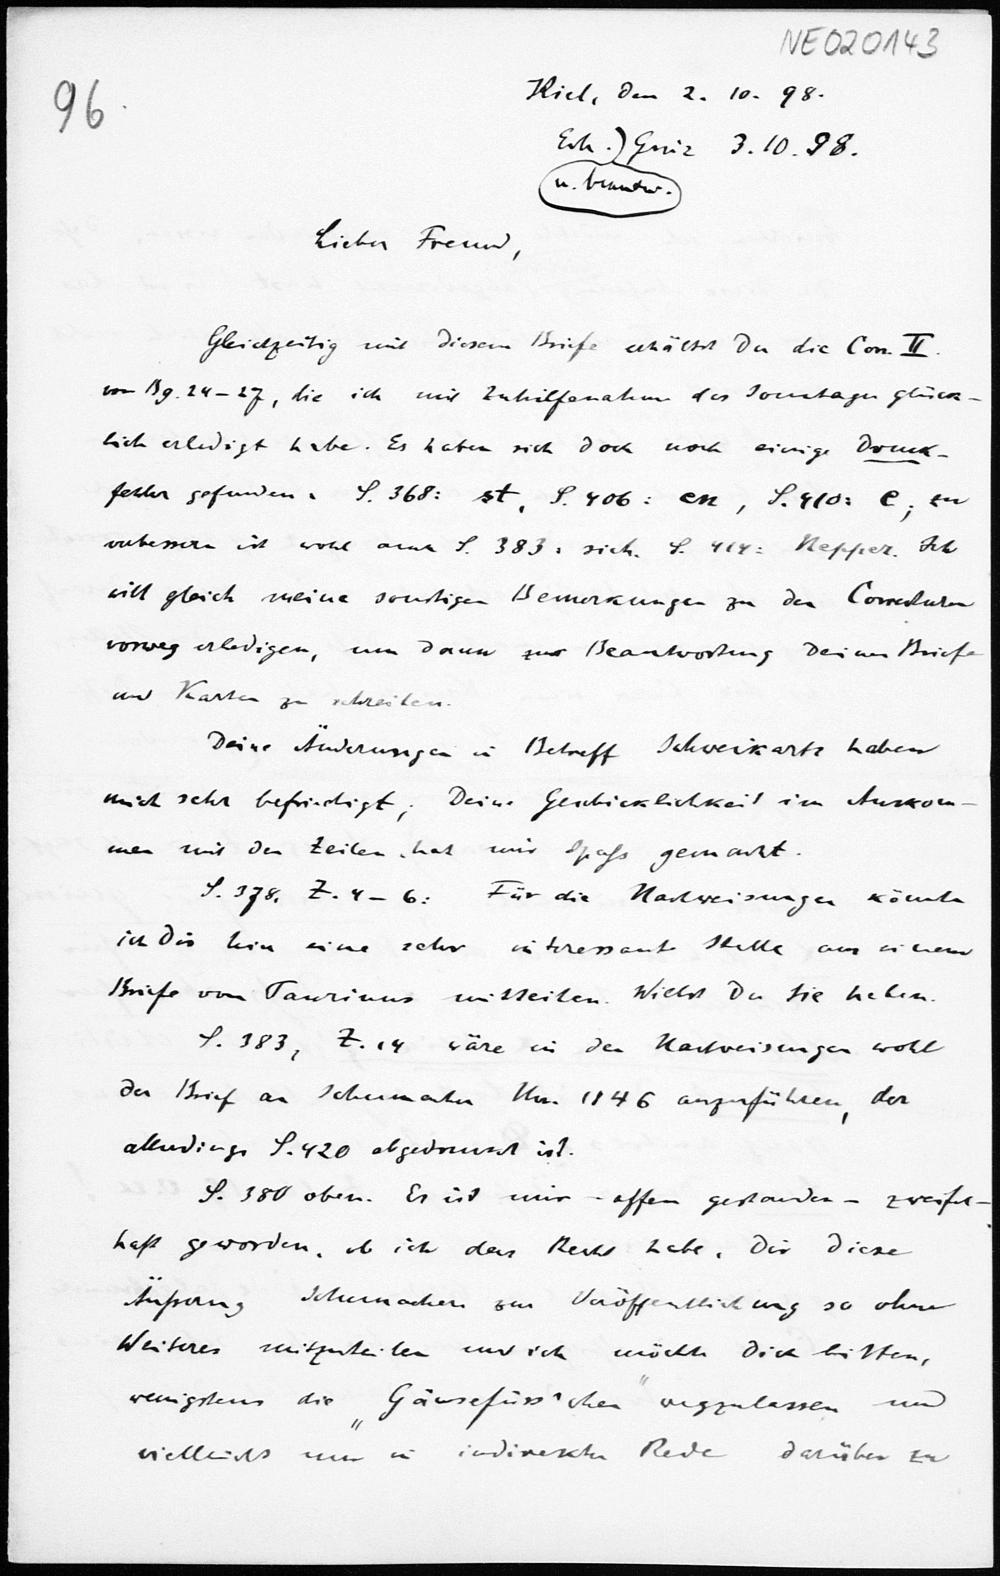 NE020143
96
Kiel, den 2. 10. 98.
Erh.) Greiz 3.10.98.
u. beantw.
Lieber Freund,
Gleichzeitig mit diesem Briefe erhältst Du die Corr. II.
von Bg. 24-27, die ich mit Zuhilfenahme des Sonntages glück-
lich erledigt habe. Es haben sich doch noch einige Druck-
fehler gefunden. S. 368: st, S. 406: en, S. 410: e; zu
verbessern ist wohl auch S. 383: sich. S. 414: Kepper. Ich
will gleich meine sonstigen Bemerkungen zu den Correcturen
vorweg erledigen, um dann zur Beantwortung Deiner Briefe
und Karten zu schreiten.
Deine Änderungen in Betreff Schweikarts haben
mich sehr befriedigt; Deine Geschicklichkeit im Auskom-
men mit den Zeilen hat mir Spaß gemacht.
S. 378, Z. 4-6: Für die Nachweisungen könnte
ich Dir hier eine sehr interessante Stelle aus einem
Briefe von Taurinus mitteilen. Willst Du sie haben.
S. 383, Z. 14 wäre in den Nachweisungen wohl
der Brief an Schumacher Nov. 1846 anzuführen, der
allerdings S. 420 abgedruckt ist.
S. 380 oben. Es ist mir - offen gestanden - zweifel-
haft geworden, ob ich das Recht habe, Dir diese
Äußerung Schumachers zur Veröffentlichung so ohne
Weiteres mitzuteilen und ich möchte Dich bitten,
wenigstens die „Gänsefüss'chen" wegzulassen und
vielleicht nur in indirekter Rede darüber zu